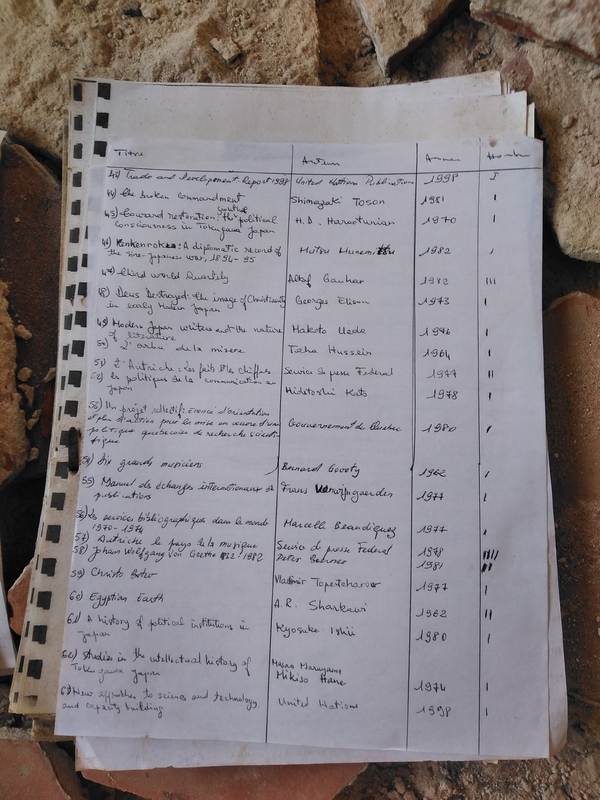 Titre Auteur Annee Nombre
43) Trade and Development Report 1998 United Nations Publication 1998 I
44) the broken commandment Shimazaki Toson 1981 I
45) toward restoration: the political H.D. Harootunian 1970 I
consciousness in Tokugawa Japan
46) Kenkenroku: A diplomatic record of Mutsu Munemitsu 1982 I
the sino-japanese war, 1894-95
47) third world Quartely Altaf Gauhar 1982 III
48) Deus Destroyed: the image of Christianity Georges Elison 1973 I
in early Modern Japan
49) Modern Japan writers and the nature Makoto Ueda 1976 I
of literature
50) L'arbre de la misere Taha Hussein 1964 I
51) L'Autriche: les faits & les chiffres Service de presse Federal 1977 II
52) les politiques de la communication au Hidetoshi Kato 1978 I
Japon
53) Un projet collectif: Enonce d'orientation Gouvernement du Quebec 1980 I
et plan d'action pour la mise en oeuvre d'une
politique quebecoise de recherche scienti
fique
54) dix grands musiciens Bernard Gavoty 1962 I
55) Manuel des échanges internationaux de Frans Vanwijngaerden 1977 I
publications
56) les services bibliographiques dans le monde Marcelle Beaudiquez 1977 I
1970-1974
57) Autriche le pays de la musique Service de presse Federal 1978 IIII
58) Johann Wolfgang von Goethe 1982 Peter Boerner 1981 II
59) Christo Botev Vladimir Topentcharov 1977 I
60) Egyptian Earth A.R. Sharkawi 1962 II
61) A history of political institutions in Kyosuke Ishii 1980 I
Japan
62) Studies in the intellectual history of Masao Maruyama
Tokugawa Japan Mikiso Hane 1974 I
63) New approches to science and technology United Nations 1998 I
and capacity building